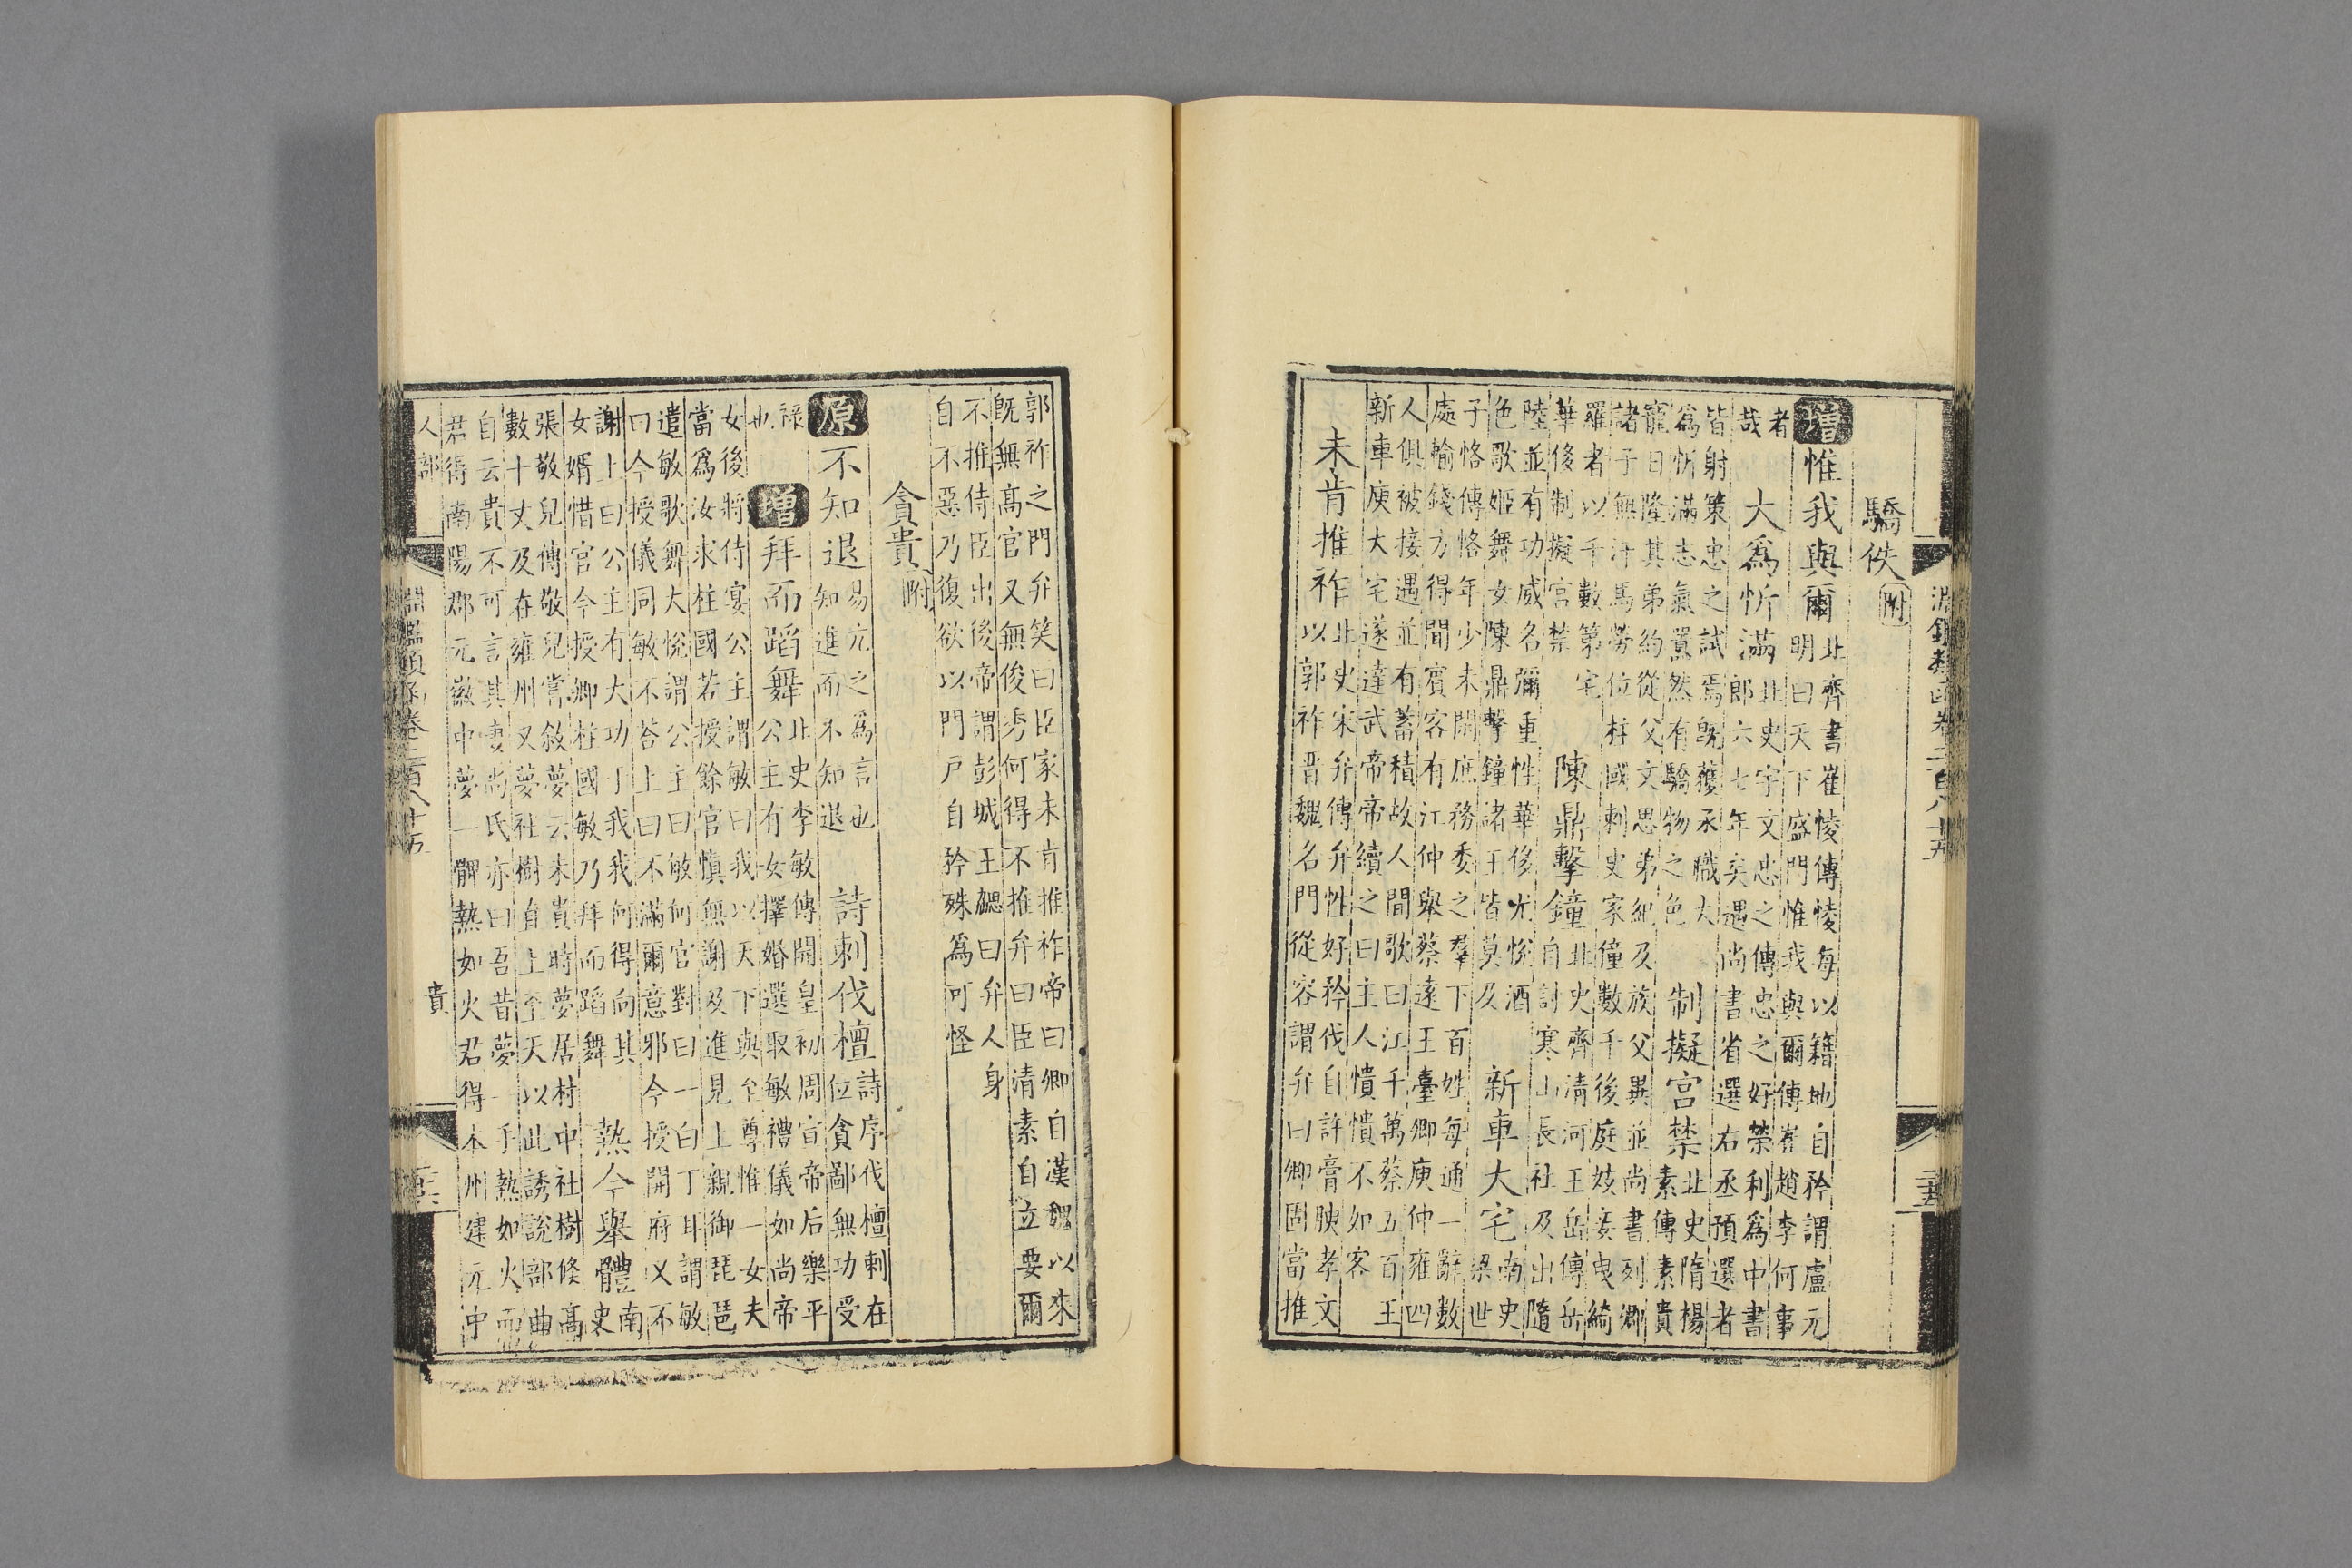 淵鑑類函卷二百八十五
二十五
驕佚附
增惟我與爾
北齊書崔㥄傳㥄每以籍地自矜謂盧元
明曰天下盛門惟我與爾傳崔趙李何事
者
哉
大爲忻滿
北史宇文忠之傳忠之好榮利爲中書
郎六七年矣遇尚書省選右丞預選者
皆射策忠之試焉既獲丞職大
爲忻滿志氣囂然有驕物之色
制擬宮禁
北史隋楊
素傳素貴
寵日隆其弟約從父文思弟紀及族父異並尚書列卿
諸子無汗馬勞位柱國刺史家僮數千後庭妓妾曳綺
羅者以千數第宅
華侈制擬宮禁
陳鼎擊鐘
北史齊清河王岳傳岳
自討寒山長社及出隨
陸並有功威名彌重性華侈尤悅酒
色歌姬舞女陳鼎擊鐘諸王皆莫及
新車大宅
南史
梁世
子恪傳恪年少未閑庶務委之羣下百姓每通一辭數
處輸錢方得聞賓客有江仲舉蔡遠王臺卿庾仲雍四
人俱被接遇並有蓄積故人間歌曰江千萬蔡五百王
新車庾大宅遂達武帝帝續之曰主人憒憒不如客
未肯推祚
北史宋弁傳弁性好矜伐自許膏腴孝文
以郭祚晉魏名門從容謂弁曰卿固當推
郭祚之門弁笑曰臣家未肯推祚帝曰卿自漢魏以來
既無高官又無俊秀何得不推弁曰臣清素自立要爾
不推侍臣出後帝謂彭城王勰曰弁人身
自不惡乃復欲以門戶自矜殊爲可怪
貪貴附
原不知退
易亢之爲言也
知進而不知退
詩刺伐檀
詩序伐檀刺在
位貪鄙無功受
祿
也
增拜而蹈舞
北史李敏傳開皇初周宣帝后樂平
公主有女擇婚選取敏禮儀如尚帝
女後將侍宴公主謂敏曰我以天下與至尊惟一女夫
當爲汝求柱國若授餘官慎無謝及進見上親御琵琶
遣敏歌舞大悅謂公主曰敏何官對曰一白丁耳謂敏
曰今授儀同敏不荅上曰不滿爾意邪今授開府又不
謝上曰公主有大功于我我何得向其
女婿惜官今授卿柱國敏乃拜而蹈舞
熱今舉體
南
史
張敬兒傳敬兒嘗敘夢云未貴時夢居村中社樹倏高
數十丈及在雍州又夢社樹直上至天以此誘說部曲
自云貴不可言其妻尚氏亦曰吾昔夢一手熱如火而
君得南陽郡元徽中夢一髀熱如火君得本州建元中
人部
貴
淵鑑類函卷二百八十五
二十六